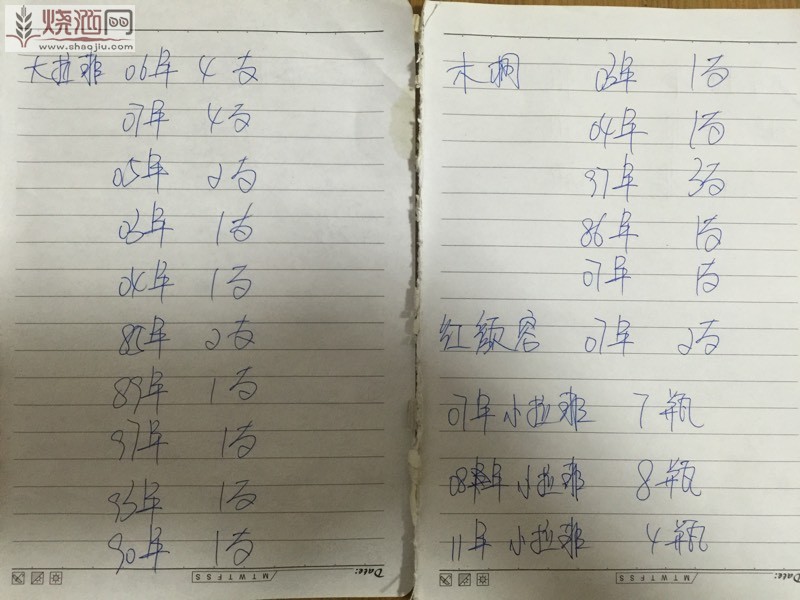 烧酒网
www.shaojiu.com
大拉菲 06年 4支
07年 4支
05年 2支
03年 1支
04年 1支
85年 2支
89年 1支
97年 1支
93年 1支
90年 1支
Date:
M T W T F S S
木桐 03年 1支
04年 1支
97年 3支
86年 1支
07年 1支
红颜容 07年 2支
07年 小拉菲 7瓶
08年 小拉菲 8瓶
11年 小拉菲 4瓶
Date:
M T W T F S S